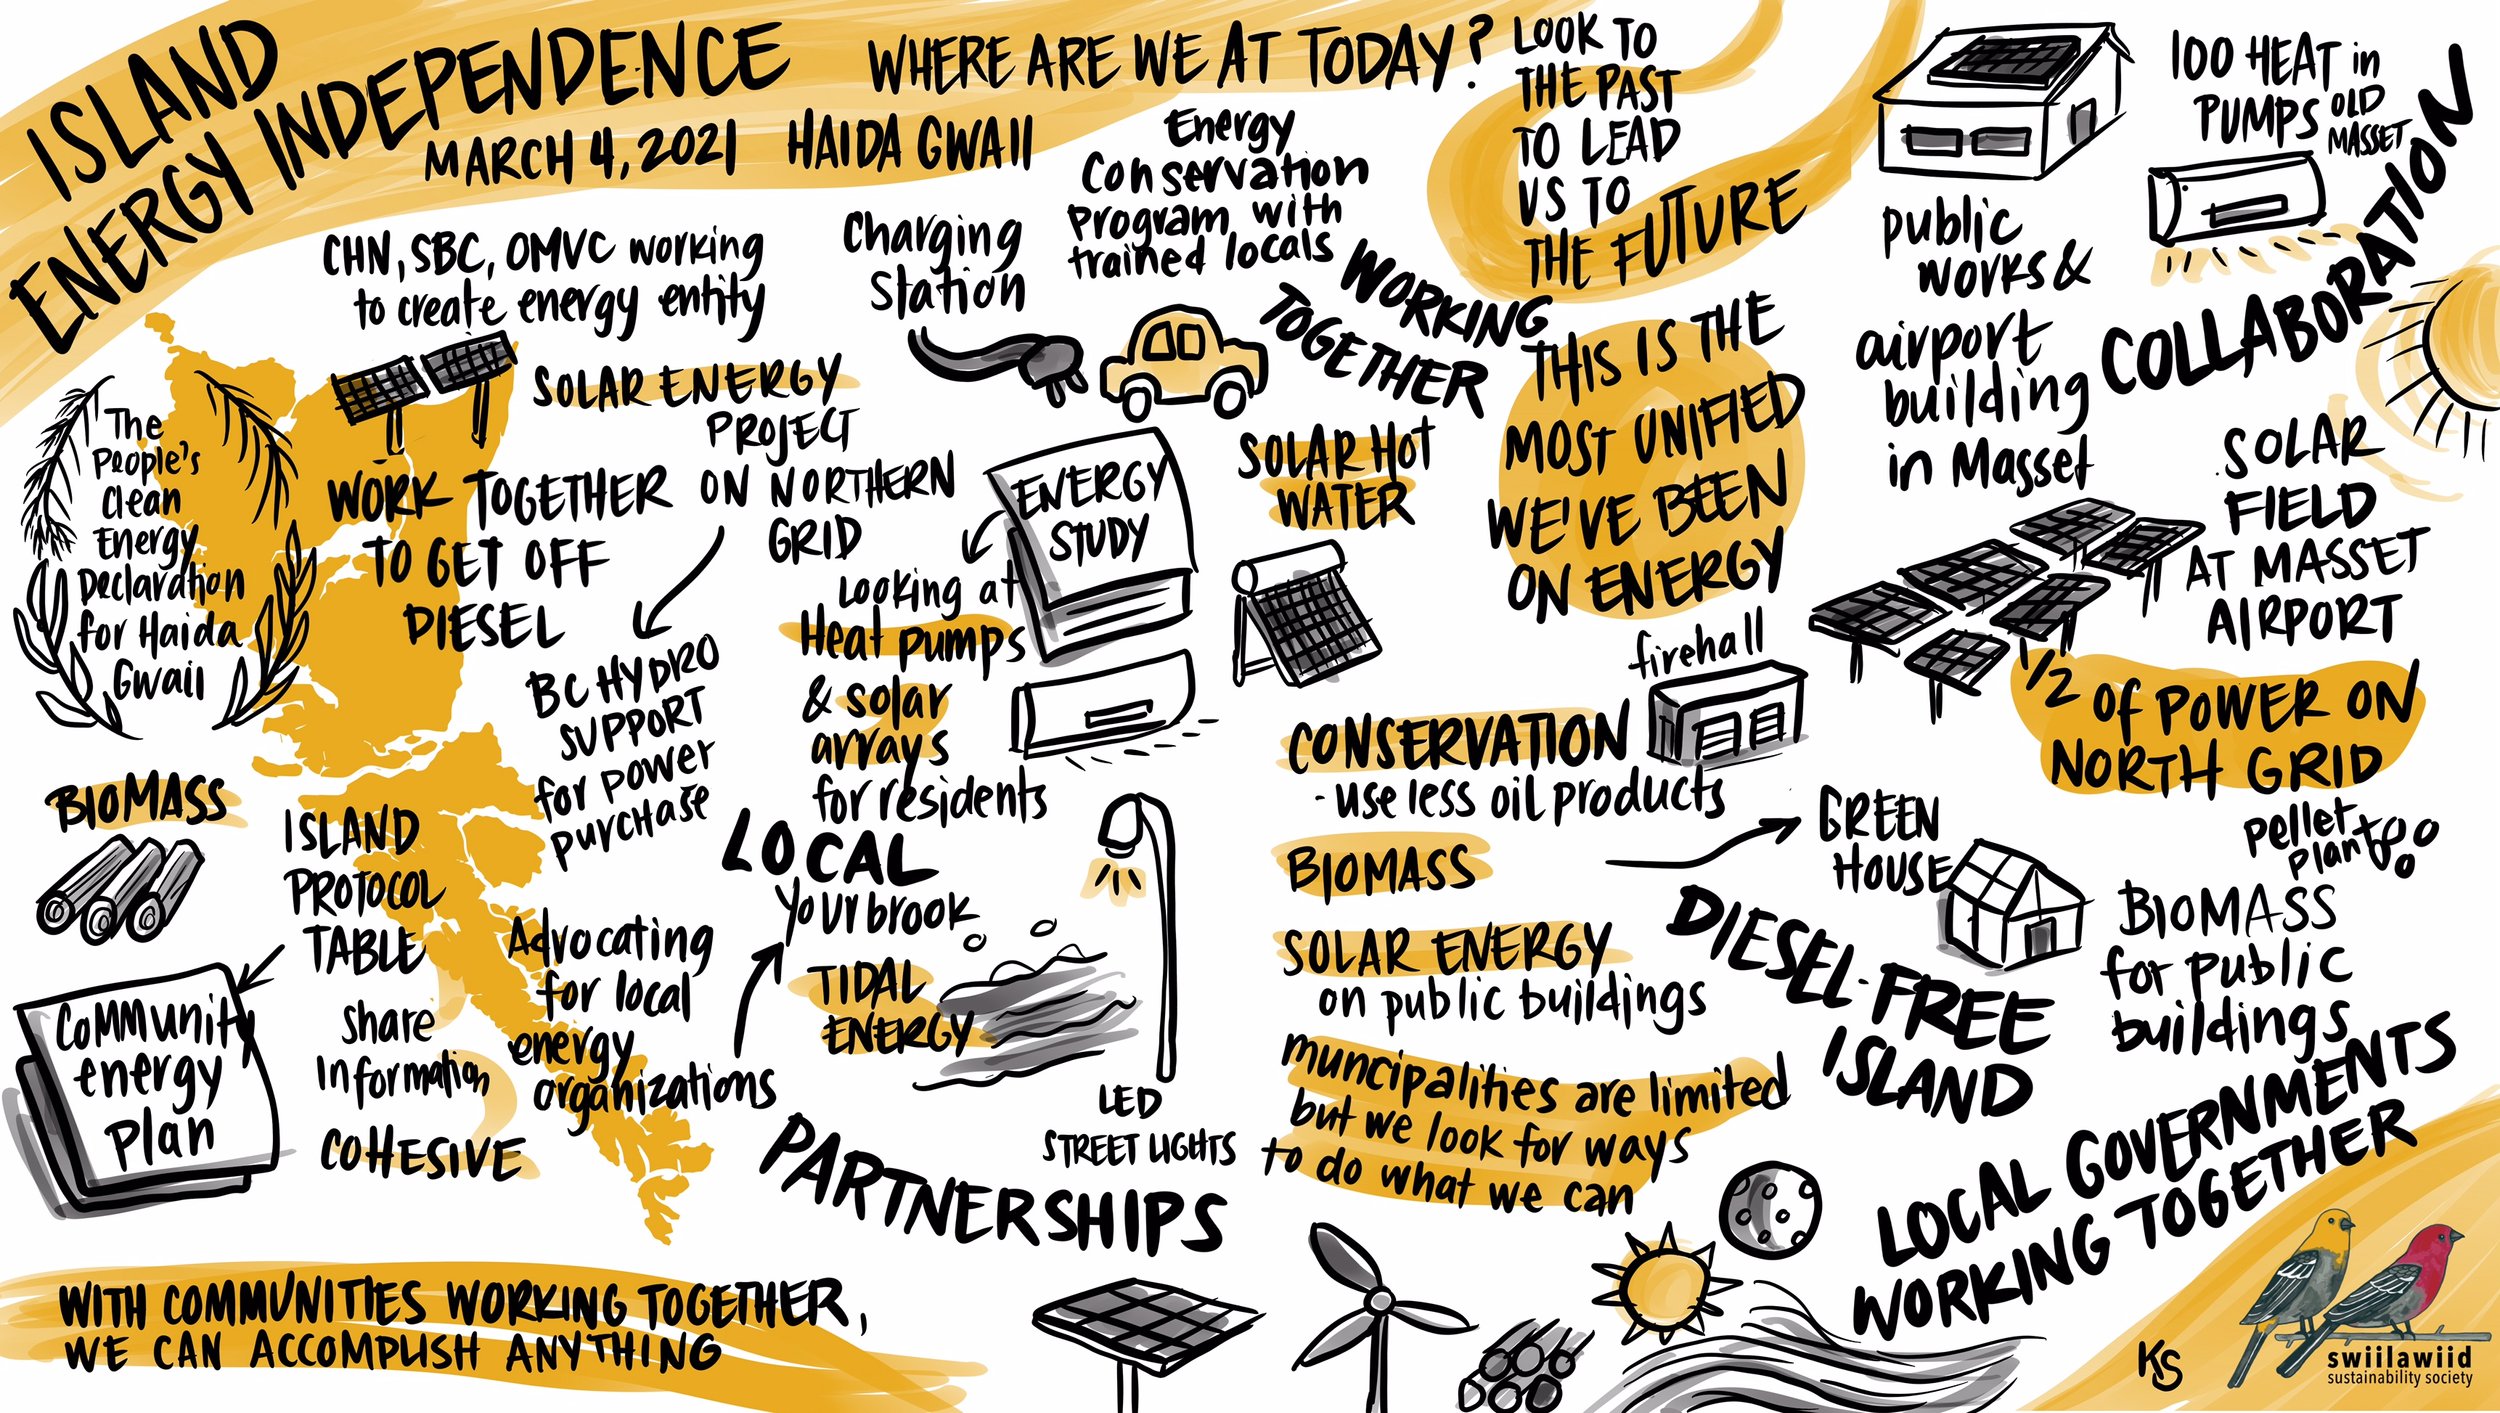 ISLAND
ENERGY INDEPENDENCE
MARCH 4, 2021 HAIDA GWAII
WHERE ARE WE AT TODAY?
CHN, SBC, OMVC working
to create energy entity
SOLAR ENERGY
PROJECT
ON NORTHERN
GRID
BC HYDRO
SUPPORT
for power
purchase
The
People's
Clean
Energy
Declaration
for Haida
Gwaii
WORK TOGETHER
TO GET OFF
DIESEL
BIOMASS
Community
energy
plan
ISLAND
PROTOCOL
TABLE
Share
Information
COHESIVE
Advocating
for local
energy
organizations
LOCAL
Yourbrook
TIDAL
ENERGY
PARTNERSHIPS
WITH COMMUNITIES WORKING TOGETHER,
WE CAN ACCOMPLISH ANYTHING
Charging
Station
Energy
Conservation
program with
trained locals
WORKING
TOGETHER
ENERGY
STUDY
Looking at
Heat pumps
& solar
arrays
for residents
LED
STREET LIGHTS
LOOK TO
THE PAST
TO LEAD
US TO
THE FUTURE
THIS IS THE
MOST UNIFIED
WE'VE BEEN
ON ENERGY
SOLAR HOT
WATER
firehall
CONSERVATION
- use less oil products
BIOMASS
GREEN
HOUSE
SOLAR ENERGY
on public buildings
muncipalities are limited
but we look for ways
to do what we can
DIESEL-FREE
ISLAND
100 HEAT in
PUMPS OLD
MASSET
public
works &
airport
building
in Masset
COLLABORATION
SOLAR
FIELD
AT MASSET
AIRPORT
1/2 of POWER ON
NORTH GRID
pellet
plant
BIOMASS
for public
buildings
LOCAL GOVERNMENTS
WORKING TOGETHER
KS
swiilawiid
sustainability society